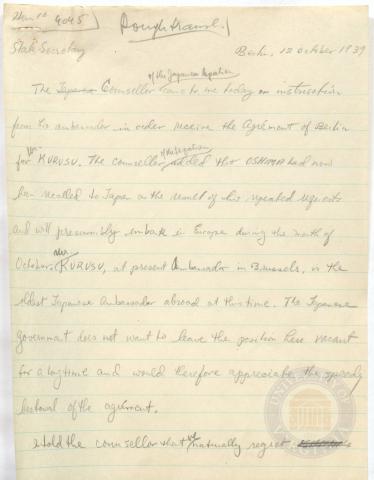 4045
Rough transl.
State Secretary
Berlin, 12 October 1939
of the Japanese Legation
The Japanese Counsellor came to me today on instruction
from his ambassador in order receive the Agrément of Berlin
Mr.
for KURUSU. The counsellor of the legation added that OSHIMA had now
been recalled to Japan as the result of his repeated requests
and will presumably embark in Europe during the month of
Mr.
October. KURUSU, at present Ambassador in Brussels, is the
oldest Japanese Ambassador abroad at this time. The Japanese
government does not want to leave the position here vacant
for a long time and would therefore appreciate the speedy
bestowal of the agrément.
I told the counsellor that we naturally regret
UNIVERSITY OF VIRGINIA